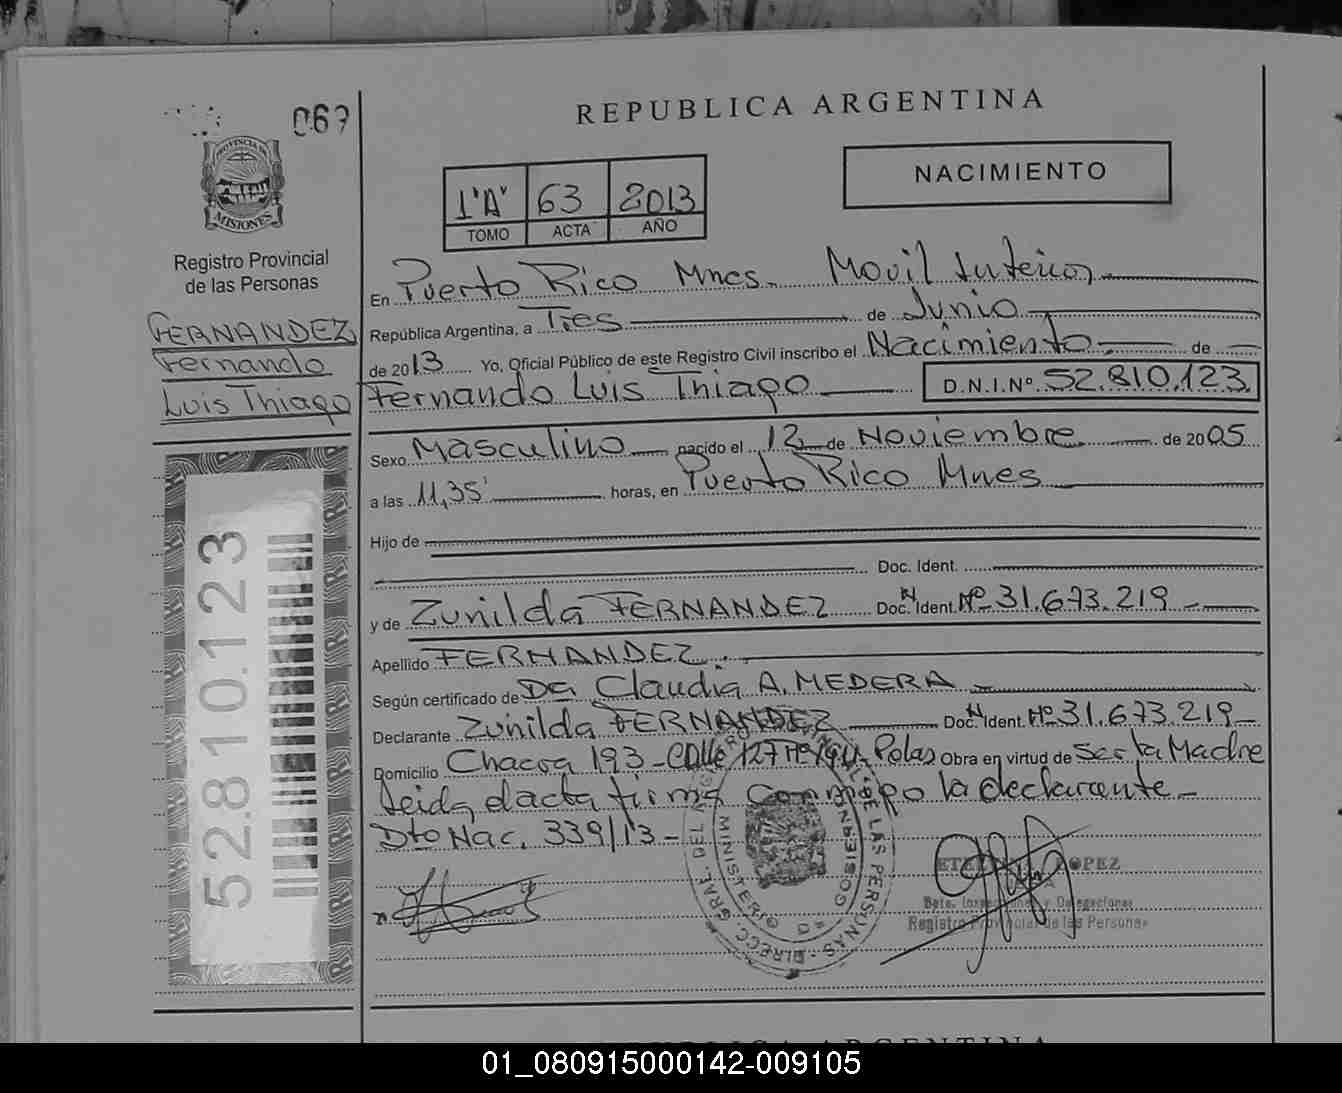 067
PROVINCIA DE
MISIONES
Registro Provincial
de las Personas
FERNANDEZ
Fernando
Luis Thiago
52.810.123
REPUBLICA ARGENTINA
1"A" 63 2013
TOMO ACTA AÑO
NACIMIENTO
En Puerto Rico Mnes. Movil Interior
República Argentina, a Tres de Junio
de 2013 Yo, Oficial Público de este Registro Civil inscribo el Nacimiento de
Fernando Luis Thiago D.N.I.Nº 52.810.123
Sexo Masculino nacido el 12 de Noviembre de 2005
a las 11,35' horas, en Puerto Rico Mnes
Hijo de
Doc. Ident.
y de Zunilda FERNANDEZ Doc. Ident. Nº 31.673.219
Apellido FERNANDEZ
Según certificado de Dra Claudia A. MEDERA
Declarante Zunilda FERNANDEZ Doc. Ident. Nº 31.673.219
Domicilio Chacra 193 - Calle 127 Nº Obra en virtud de ser la Madre
leida el acta firma conmigo la declarante -
Dto Nac. 339/13 -
LOPEZ
Registro Provincial de las Personas
MINISTERIO DE GOBIERNO
REPUBLICA ARGENTINA
01_080915000142-009105